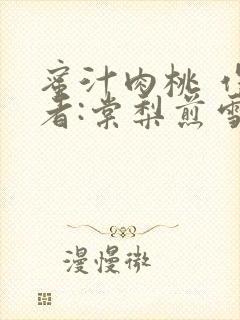 蜜汁肉桃 作
者:棠梨煎雪
漫慢微